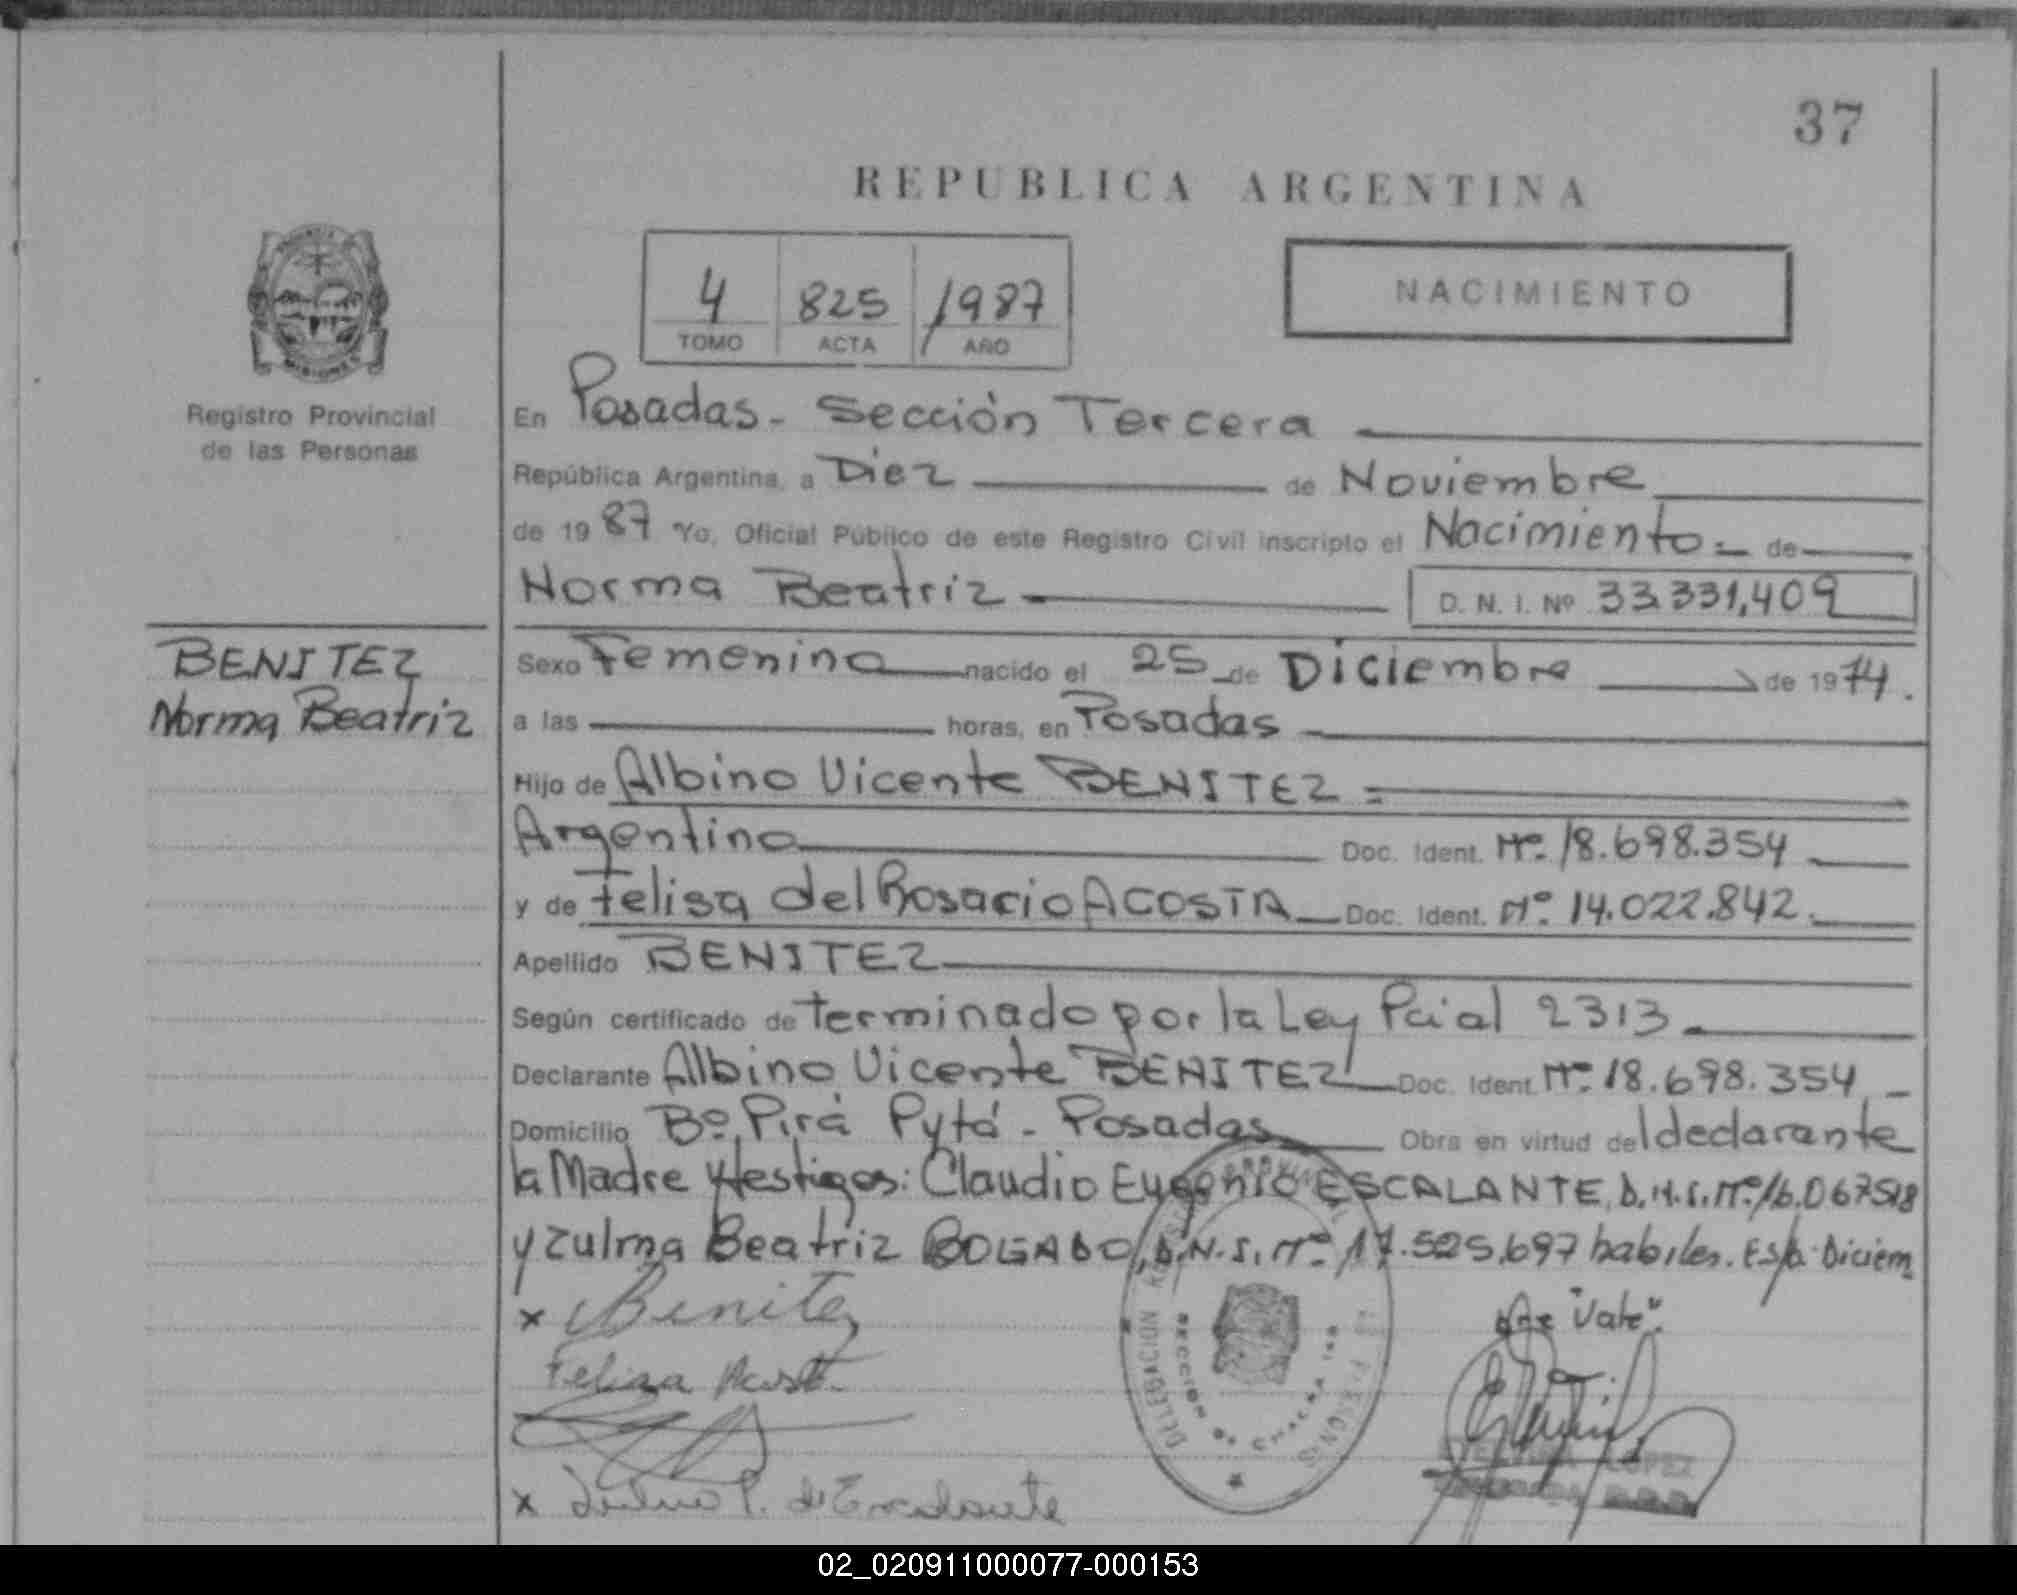 37
REPUBLICA ARGENTINA
4 825 1987
TOMO ACTA AÑO
NACIMIENTO
Registro Provincial
de las Personas
En Posadas - Sección Tercera
República Argentina, a Diez de Noviembre
de 1987 Yo, Oficial Público de este Registro Civil inscripto el Nacimiento.- de
Norma Beatriz D. N. I. Nº 33.331,409
BENITEZ
Norma Beatriz
Sexo Femenino nacido el 25 de Diciembre de 1974.
a las horas, en Posadas
Hijo de Albino Vicente BENITEZ =
Argentino Doc. Ident. Nº. 18.698.354
y de Felisa del Rosario ACOSTA Doc. Ident. Nº. 14.022.842.
Apellido BENITEZ
Según certificado de terminado por la Ley Pcial 2313.
Declarante Albino Vicente BENITEZ Doc. Ident. Nº. 18.698.354
Domicilio Bº. Pirá Pytá - Posadas Obra en virtud del declarante
la Madre y testigos: Claudio Eugenio ESCALANTE, D.N.I. Nº. 16.067518
y Zulma Beatriz BOGADO, D.N.I. Nº. 17.525.697 habiles. Es/b. Diciem
bre "Vale".
x Benitez
Felisa Acost.
x P. de Escalante
DELEGACION
SECCION DE CHACRA
LOPEZ
02_020911000077-000153